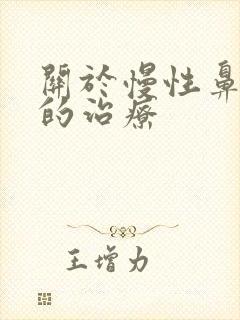 關於慢性鼻
的治療
王增力